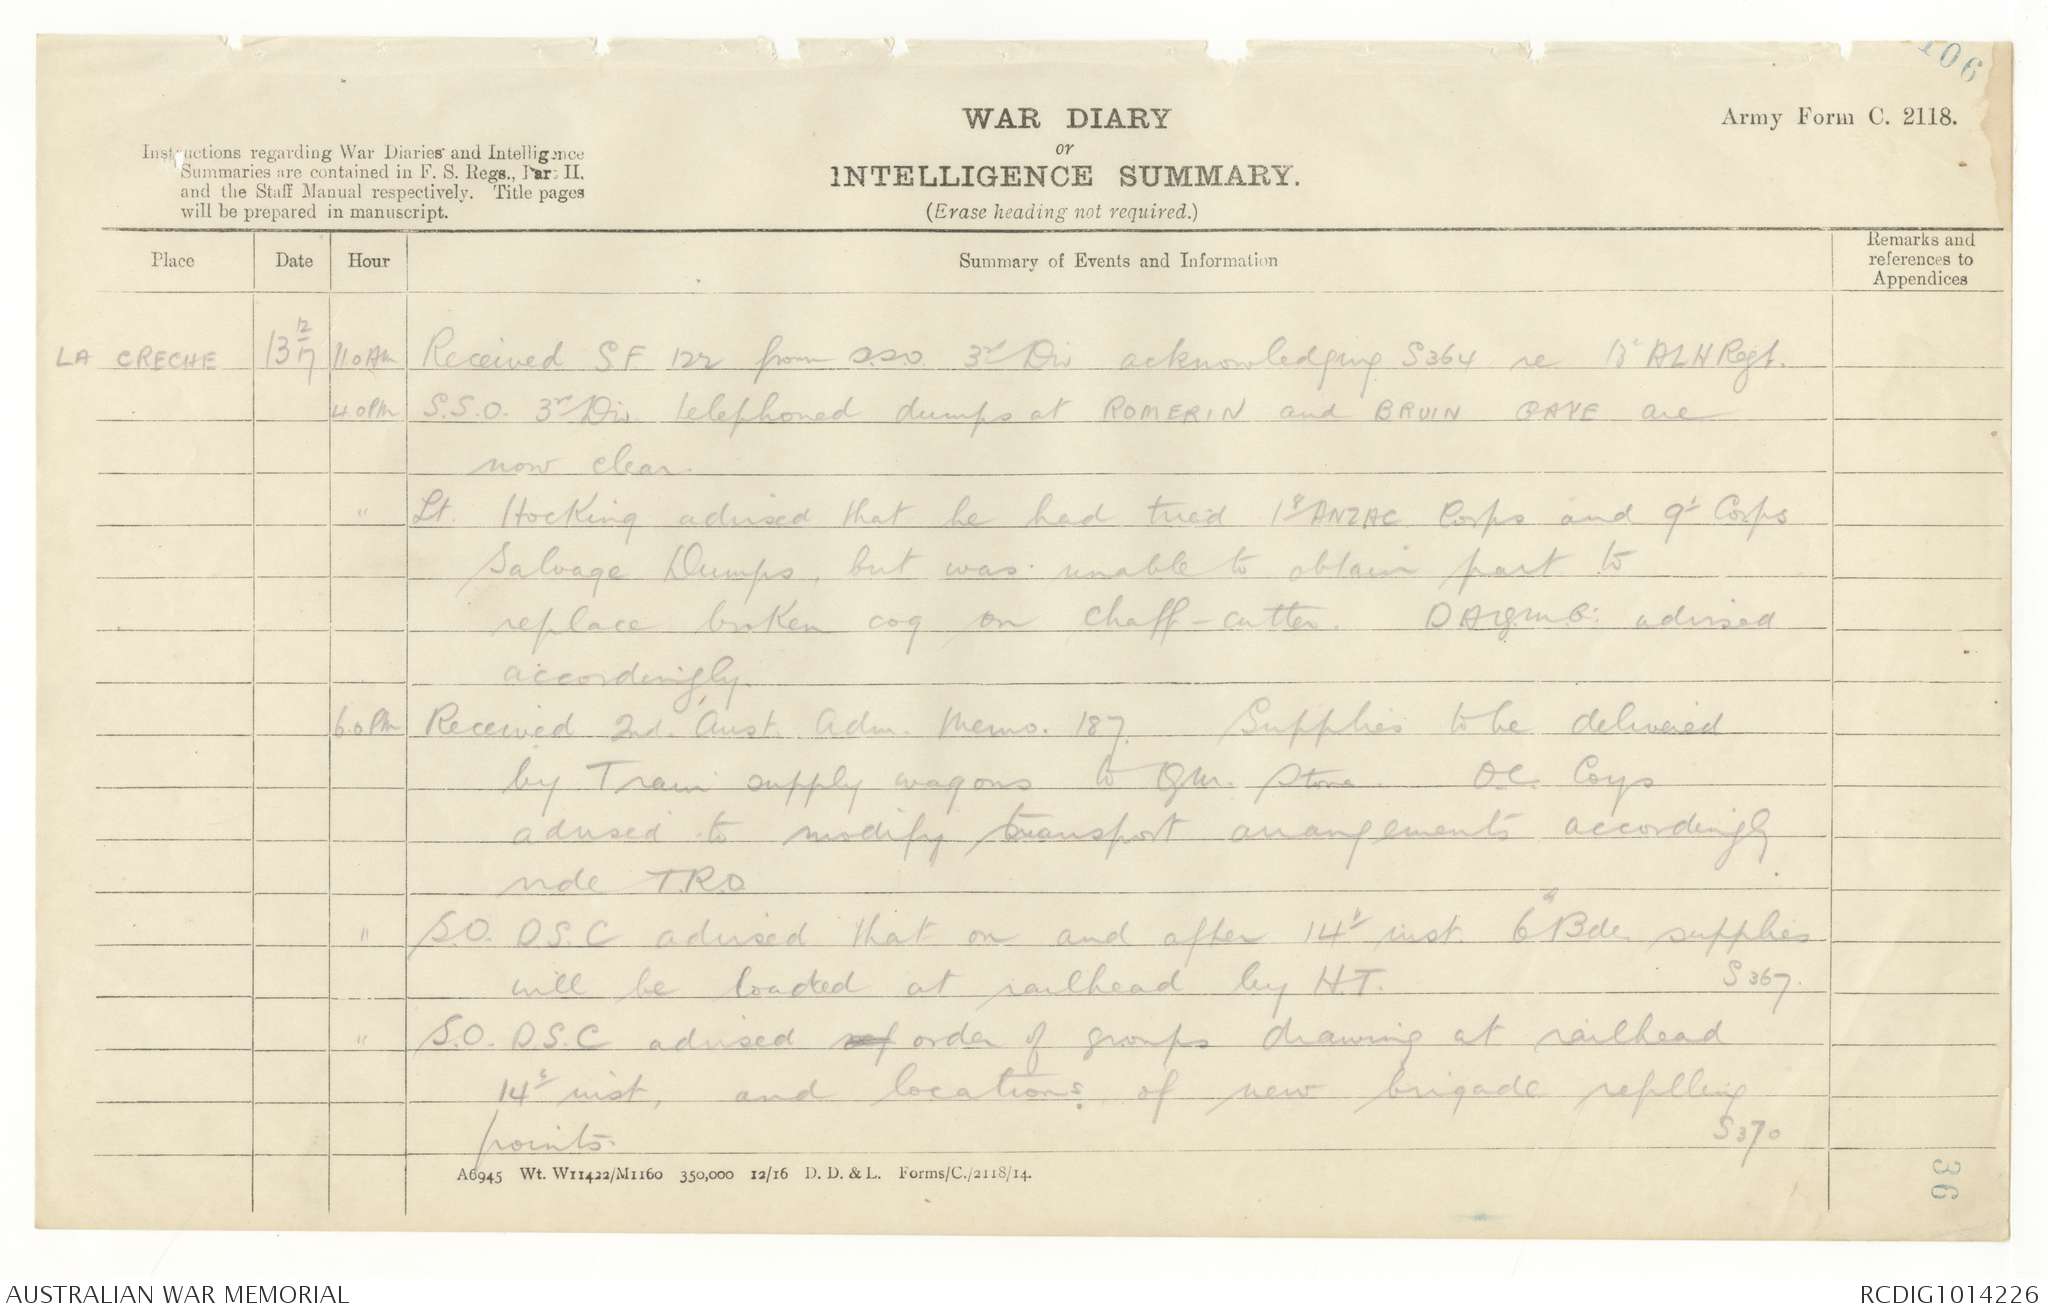 106
WAR DIARY
or
INTELLIGENCE SUMMARY.
(Erase heading not required.)
Army Form C. 2118.
Instructions regarding War Diaries and Intelligence
Summaries are contained in F. S. Regs., Part II.
and the Staff Manual respectively. Title pages
will be prepared in manuscript.
Place Date Hour Summary of Events and Information Remarks and references to Appendices
LA CRECHE 13 12/17 11.0 AM Received S.F. 122 from S.S.O. 3rd Div acknowledging S364 re 13th ALH Regt.
4.0 PM S.S.O. 3rd Div. telephoned dumps at ROMERIN and BRUIN GAYE are
now clear.
" Lt. Hocking advised that he had tried 1st ANZAC Corps and 9th Corps
Salvage Dumps, but was unable to obtain part to
replace broken cog on chaff-cutter. DAQMG. advised
accordingly.
6.0 PM Received 2nd. Aust. Adm. Memo. 187. Supplies to be delivered
by Train supply wagons to QM. Store. O.C. Coys
advised to modify transport arrangements accordingly
vide T.R.O
" S.O. D.S.C advised that on and after 14th inst. 6th Bde. supplies
will be loaded at railhead by H.T. S367.
" S.O. D.S.C advised order of groups drawing at railhead
14th inst, and locations of new brigade replling
points. S370
A6945 Wt. W11422/M1160 350,000 12/16 D. D. & L. Forms/C./2118/14.
36
AUSTRALIAN WAR MEMORIAL
RCDIG1014226